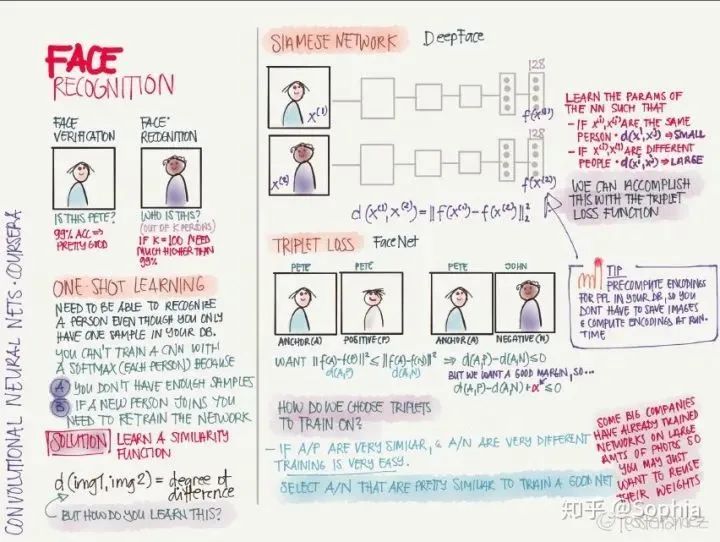 CONVOLUTIONAL NEURAL NETS · COURSERA
FACE
RECOGNITION
FACE
VERIFICATION
FACE
RECOGNITION
IS THIS PETE?
99% ACC ⇒
PRETTY GOOD
WHO IS THIS?
(OUT OF K PERSONS)
IF K=100 NEED
MUCH HIGHER THAN
99%
ONE-SHOT LEARNING
NEED TO BE ABLE TO RECOGNIZE
A PERSON EVEN THOUGH YOU ONLY
HAVE ONE SAMPLE IN YOUR DB.
YOU CAN'T TRAIN A CNN WITH
A SOFTMAX (EACH PERSON) BECAUSE
A YOU DON'T HAVE ENOUGH SAMPLES
B IF A NEW PERSON JOINS YOU
NEED TO RETRAIN THE NETWORK
SOLUTION LEARN A SIMILARITY
FUNCTION
d(img1, img2) = degree of
difference
BUT HOW DO YOU LEARN THIS?
SIAMESE NETWORK DeepFace
128
X⁽¹⁾
f(X⁽¹⁾)
128
X⁽²⁾
f(X⁽²⁾)
d(X⁽¹⁾, X⁽²⁾) = ‖f(X⁽¹⁾) - f(X⁽²⁾)‖²₂
LEARN THE PARAMS OF
THE NN SUCH THAT
- IF X⁽ⁱ⁾, X⁽ʲ⁾ ARE THE SAME
PERSON · d(Xⁱ, Xʲ) ⇒ SMALL
- IF X⁽ⁱ⁾, X⁽ʲ⁾ ARE DIFFERENT
PEOPLE · d(Xⁱ, Xʲ) ⇒ LARGE
WE CAN ACCOMPLISH
THIS WITH THE TRIPLET
LOSS FUNCTION
TIP
PRECOMPUTE ENCODINGS
FOR PPL IN YOUR DB, SO YOU
DONT HAVE TO SAVE IMAGES
& COMPUTE ENCODINGS AT RUN-
TIME
TRIPLET LOSS FaceNet
PETE PETE PETE JOHN
ANCHOR(A) POSITIVE(P) ANCHOR(A) NEGATIVE(N)
WANT ‖f(A)-f(P)‖² ≤ ‖f(A)-f(N)‖² ⇒ d(A,P)-d(A,N) ≤ 0
d(A,P) d(A,N)
BUT WE WANT A GOOD MARGIN, SO...
d(A,P)-d(A,N)+α ≤ 0
HOW DO WE CHOOSE TRIPLETS
TO TRAIN ON?
- IF A/P ARE VERY SIMILAR, & A/N ARE VERY DIFFERENT
TRAINING IS VERY EASY.
SELECT A/N THAT ARE PRETTY SIMILAR TO TRAIN A GOOD NET
SOME BIG COMPANIES
HAVE ALREADY TRAINED
NETWORKS ON LARGE
AMTS OF PHOTOS SO
YOU MAY JUST
WANT TO REUSE
THEIR WEIGHTS
知乎 @Sophia
@TessFerrandez